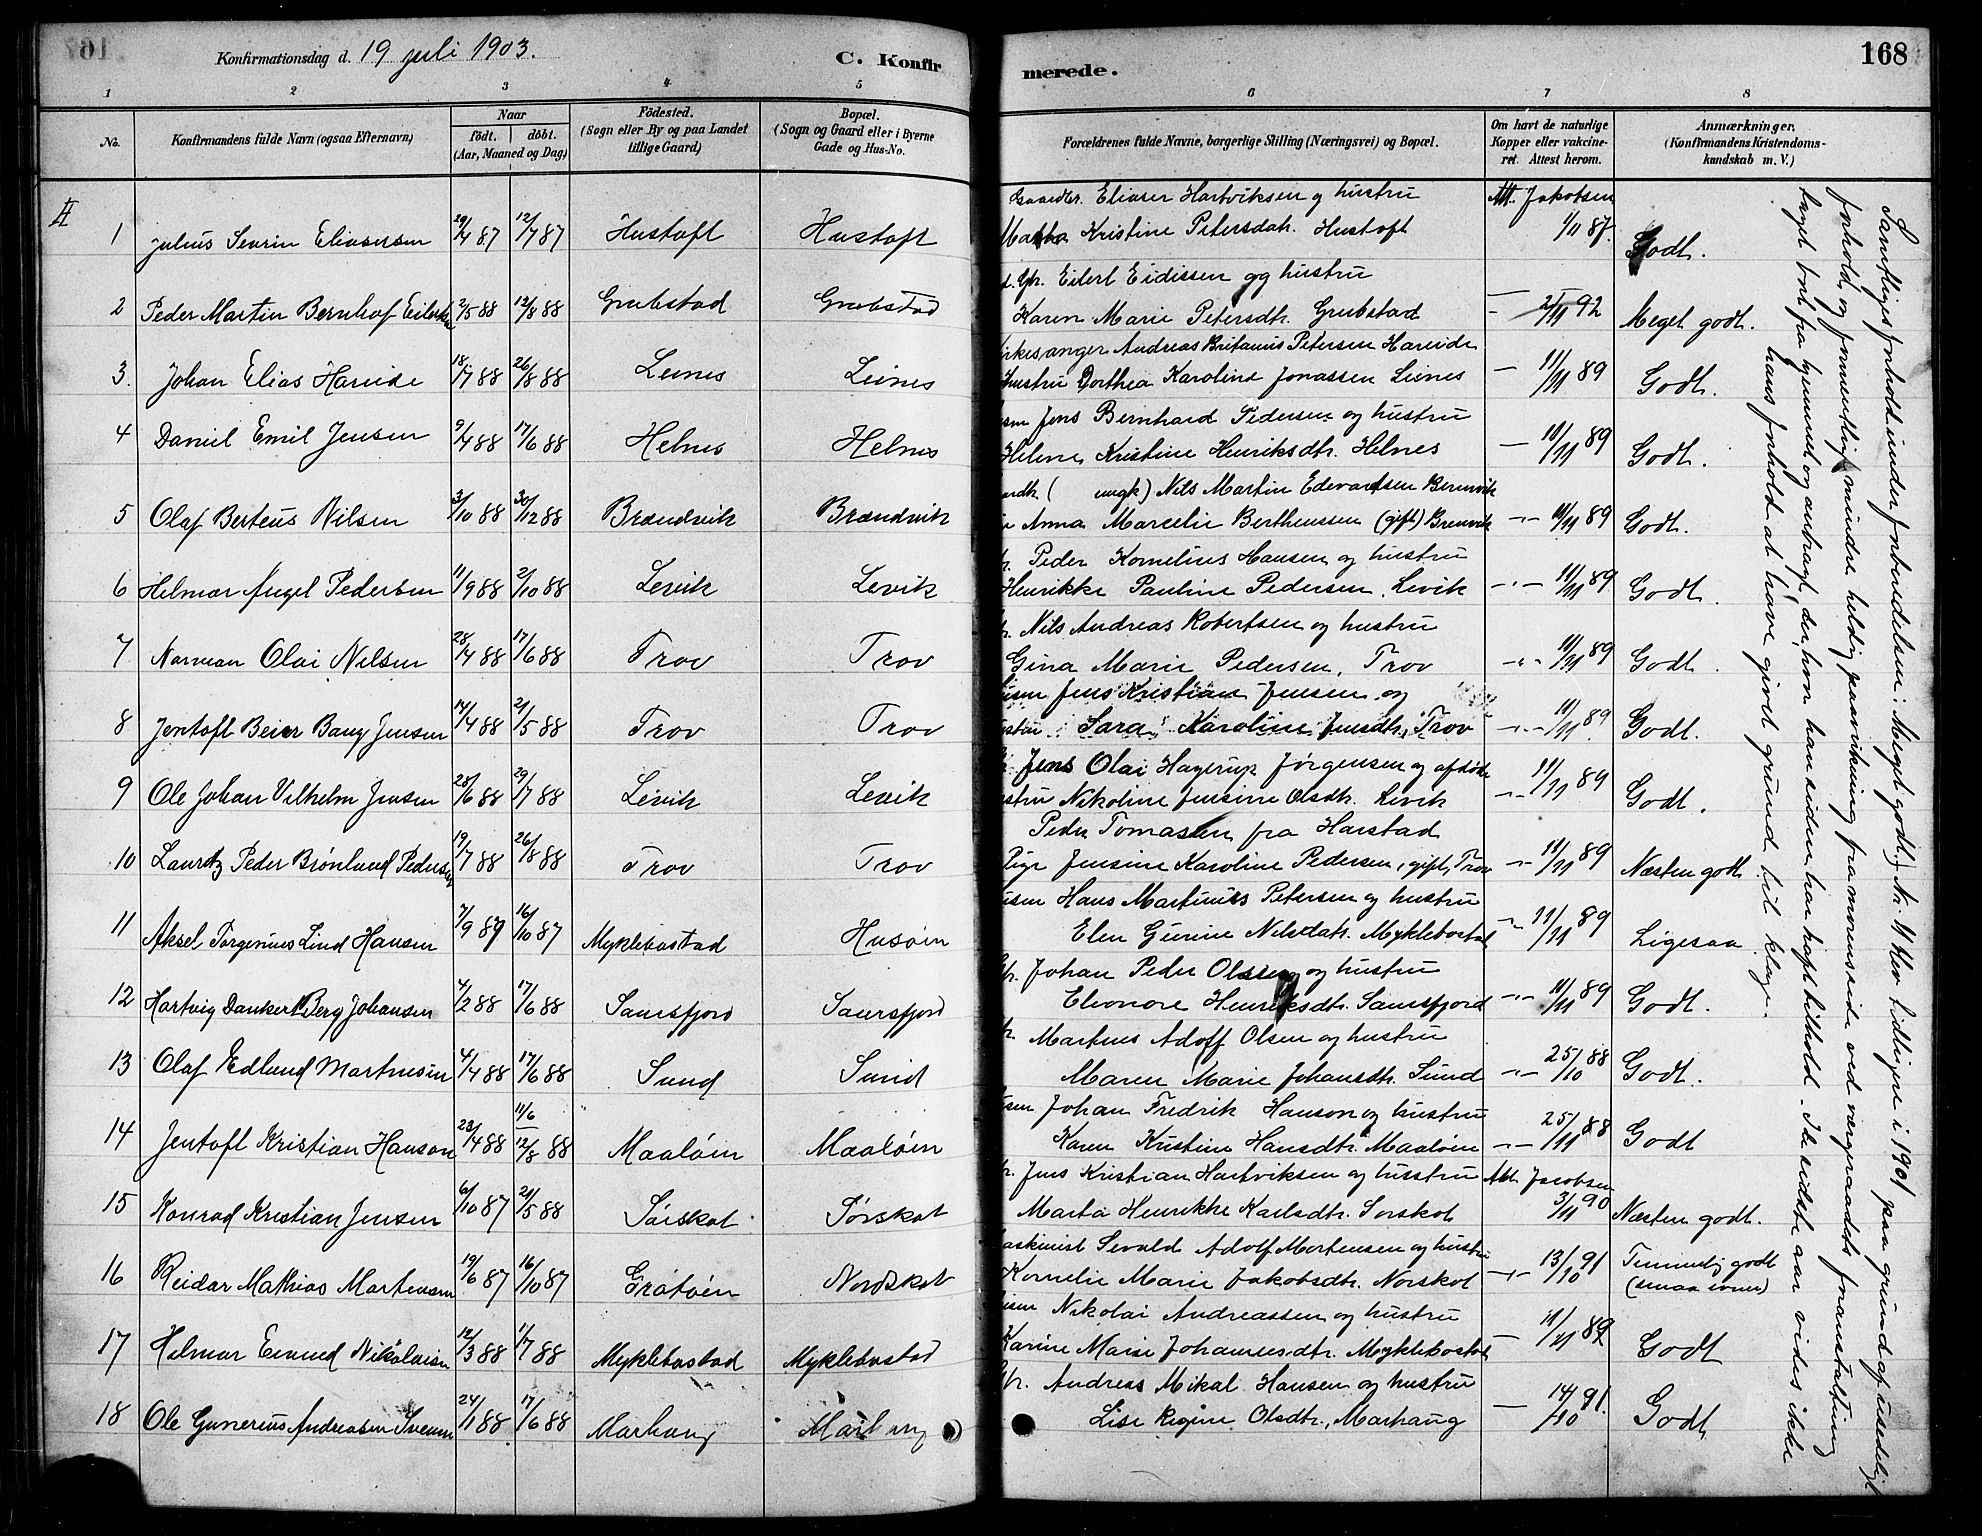 Konfirmationsdag d. 19 juli 1903.
C. Konfir
merede.
168
1 2 3 4 5 6 7 8
No.
Konfirmandens fulde Navn (ogsaa Efternavn)
Naar
födt. döbt.
(Aar, Maaned og Dag)
Födested.
(Sogn eller By og paa Landet
tillige Gaard)
Bopæl.
(Sogn og Gaard eller i Byerne
Gade og Hus-No.
Forældrenes fulde Navne, borgerlige Stilling (Næringsvei) og Bopæl.
Om havt de naturlige
Kopper eller vakcine-
ret. Attest herom.
Anmærkninger.
(Konfirmandens Kristendoms-
kundskab m. V.)
Gaardbr. Eliaser Hartviksen og hustru Att. Jakobsen
1 Julius Sevrin Eliasersen 29/4 87 12/7 87 Hustoft Hustoft Kristine Petersdatr. Hustoft 1/11 87. Godt.
Eilert Eidissen og hustru
2 Peder Martin Bernhof 2/5 88 12/8 88 Grubstad Grubstad Karen Marie Petersdtr. Grubstad 92 Meget godt.
Kirkesanger Andreas Britanius Petersen Hareide
3. Johan Elias Hareide 18/7 88 26/8 88 Leines Leines hustru Dorthea Karoline Jonassen Leines 11/11 89 Godt.
Jens Bernhard Pedersen og hustru
4 Daniel Emil Jensen 9/4 88 17/6 88 Helnes Helnes Helene Kristine Henriksdtr. Helnes 11/11 89 Godt.
( ungk) Nils Martin Edevartsen Brenvik
5 Olaf Berteus Nilsen 3/10 88 30/12 88 Brændvik Brændvik Anna Marcelie Bertheussen (gift) Brenvik 11/11 89 Godt.
Peder Kornelius Hansen og hustru
6 Helmar Angel Pedersen 11/9 88 2/10 88 Levik Levik Henrikke Pauline Pedersen, Levik 11/11 89 Godt.
Nils Andreas Robertsen og hustru
7 Norman Olai Nilsen 28/4 88 17/6 88 Trov Trov Gina Marie Pedersen, Trov 11/11 89 Godt.
Jens Kristian Jensen og
8 Jentoft Beier Bang Jensen 14/4 88 21/5 88 Trov Trov Sara Karoline Jensdtr. Trov 11/11 89 Godt.
Jens Olai Hagerup Jørgensen og afdøde
9 Ole Johan Vilhelm Jensen 28/6 88 29/7 88 Levik Levik Nikoline Jensine Olsdtr. Levik 11/11 89 Godt.
Peder Tomassen fra Harstad
10 Lauritz Peder Brønlund Pedersen 19/7 88 26/8 88 Trov Trov Pige Jensine Karoline Pedersen, gift, Trov 11/11 89 Næsten godt
Hans Martinius Petersen og hustru
11 Aksel Torgenius Lind Hansen 7/9 87 16/10 87 Myklebostad Husøen Elen Gurine Nilsdatr. Myklebostad 11/11 89 Ligesaa
Johan Peder Olsen og hustru
12 Hartvig Dankert Berg Johansen 4/2 88 17/6 88 Saursfjord Saursfjord Eleonore Henriksdtr. Saursfjord 11/11 89 Godt.
Martinus Adolf Olsen og hustru
13 Olaf Edlund Martinsen 4/4 88 17/6 88 Sund Sund Maren Marie Johansdtr. Sund 25/10 88 Godt.
Johan Fredrik Hanson og hustru
14 Jentoft Kristian Hanson 23/4 88 11/6 12/8 88 Maaløen Maaløen Karen Kristine Hansdtr. Maaløen 25/11 88 Godt
Jens Kristian Hartviksen og husstru Att. Jacobsen
15 Konrad Kristian Jensen 6/10 87 21/5 88 Sørskot Sørskot Marta Henrikke Karlsdtr. Sørskot 3/11 90 Næsten godt.
Maskinist Sevald Adolf Mortensen og hustru
16 Reidar Mathias Mortensen 19/6 87 16/10 87 Grøtøen Nordskot Kornelie Marie Jakobsdtr. Nørskot 13/10 91 Temmelig godt
(smaa evner)
Nikolai Andreassen og hustru
17 Helmar Edvind Nikolaisen 12/3 88 1/7 88 Myklebostad Myklebostad Karine Marie Johannesdtr. Myklebostad 11/11 89 Godt
Andreas Mikal Hansen og hustru
18 Ole Gunerius Andreasen 24/1 88 17/6 88 Marhaug Lise Regine Olsdtr., Marhaug 14/10 91. Godt
Samtliges forhold under forberedelsen: Meget godt. Nr. 11 blev tidligere i 1901 paa grund af usedeligt
forhold og formentlig mindre heldig paavirkning fra morens side ved vergeraadets foranstaltning
taget bort fra hjemmet og anbragt, der, hvor han siden har haft tilhold. I de sidste aar vides ikke
hans forhold at have givet grund til klage.